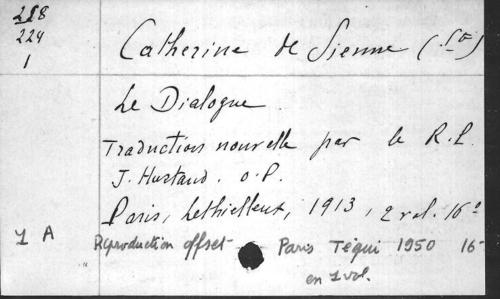 218
224
1
Catherine de Sienne (Ste)
Le Dialogue.
Traduction nouvelle par le R.P.
J. Hurtaud. O.P.
Paris, Lethielleux, 1913, 2 vol. 16°
1 A Reproduction offset Paris Téqui 1950 16°
en 1 vol.